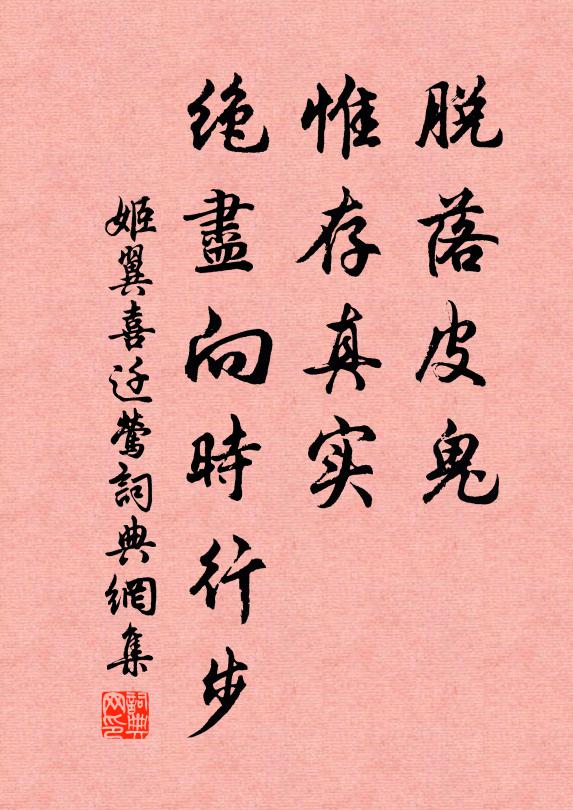 脱落皮鬼
惟存真实
绝盡向時行步
姬翼喜迁鶯詞典網集
詞典网印